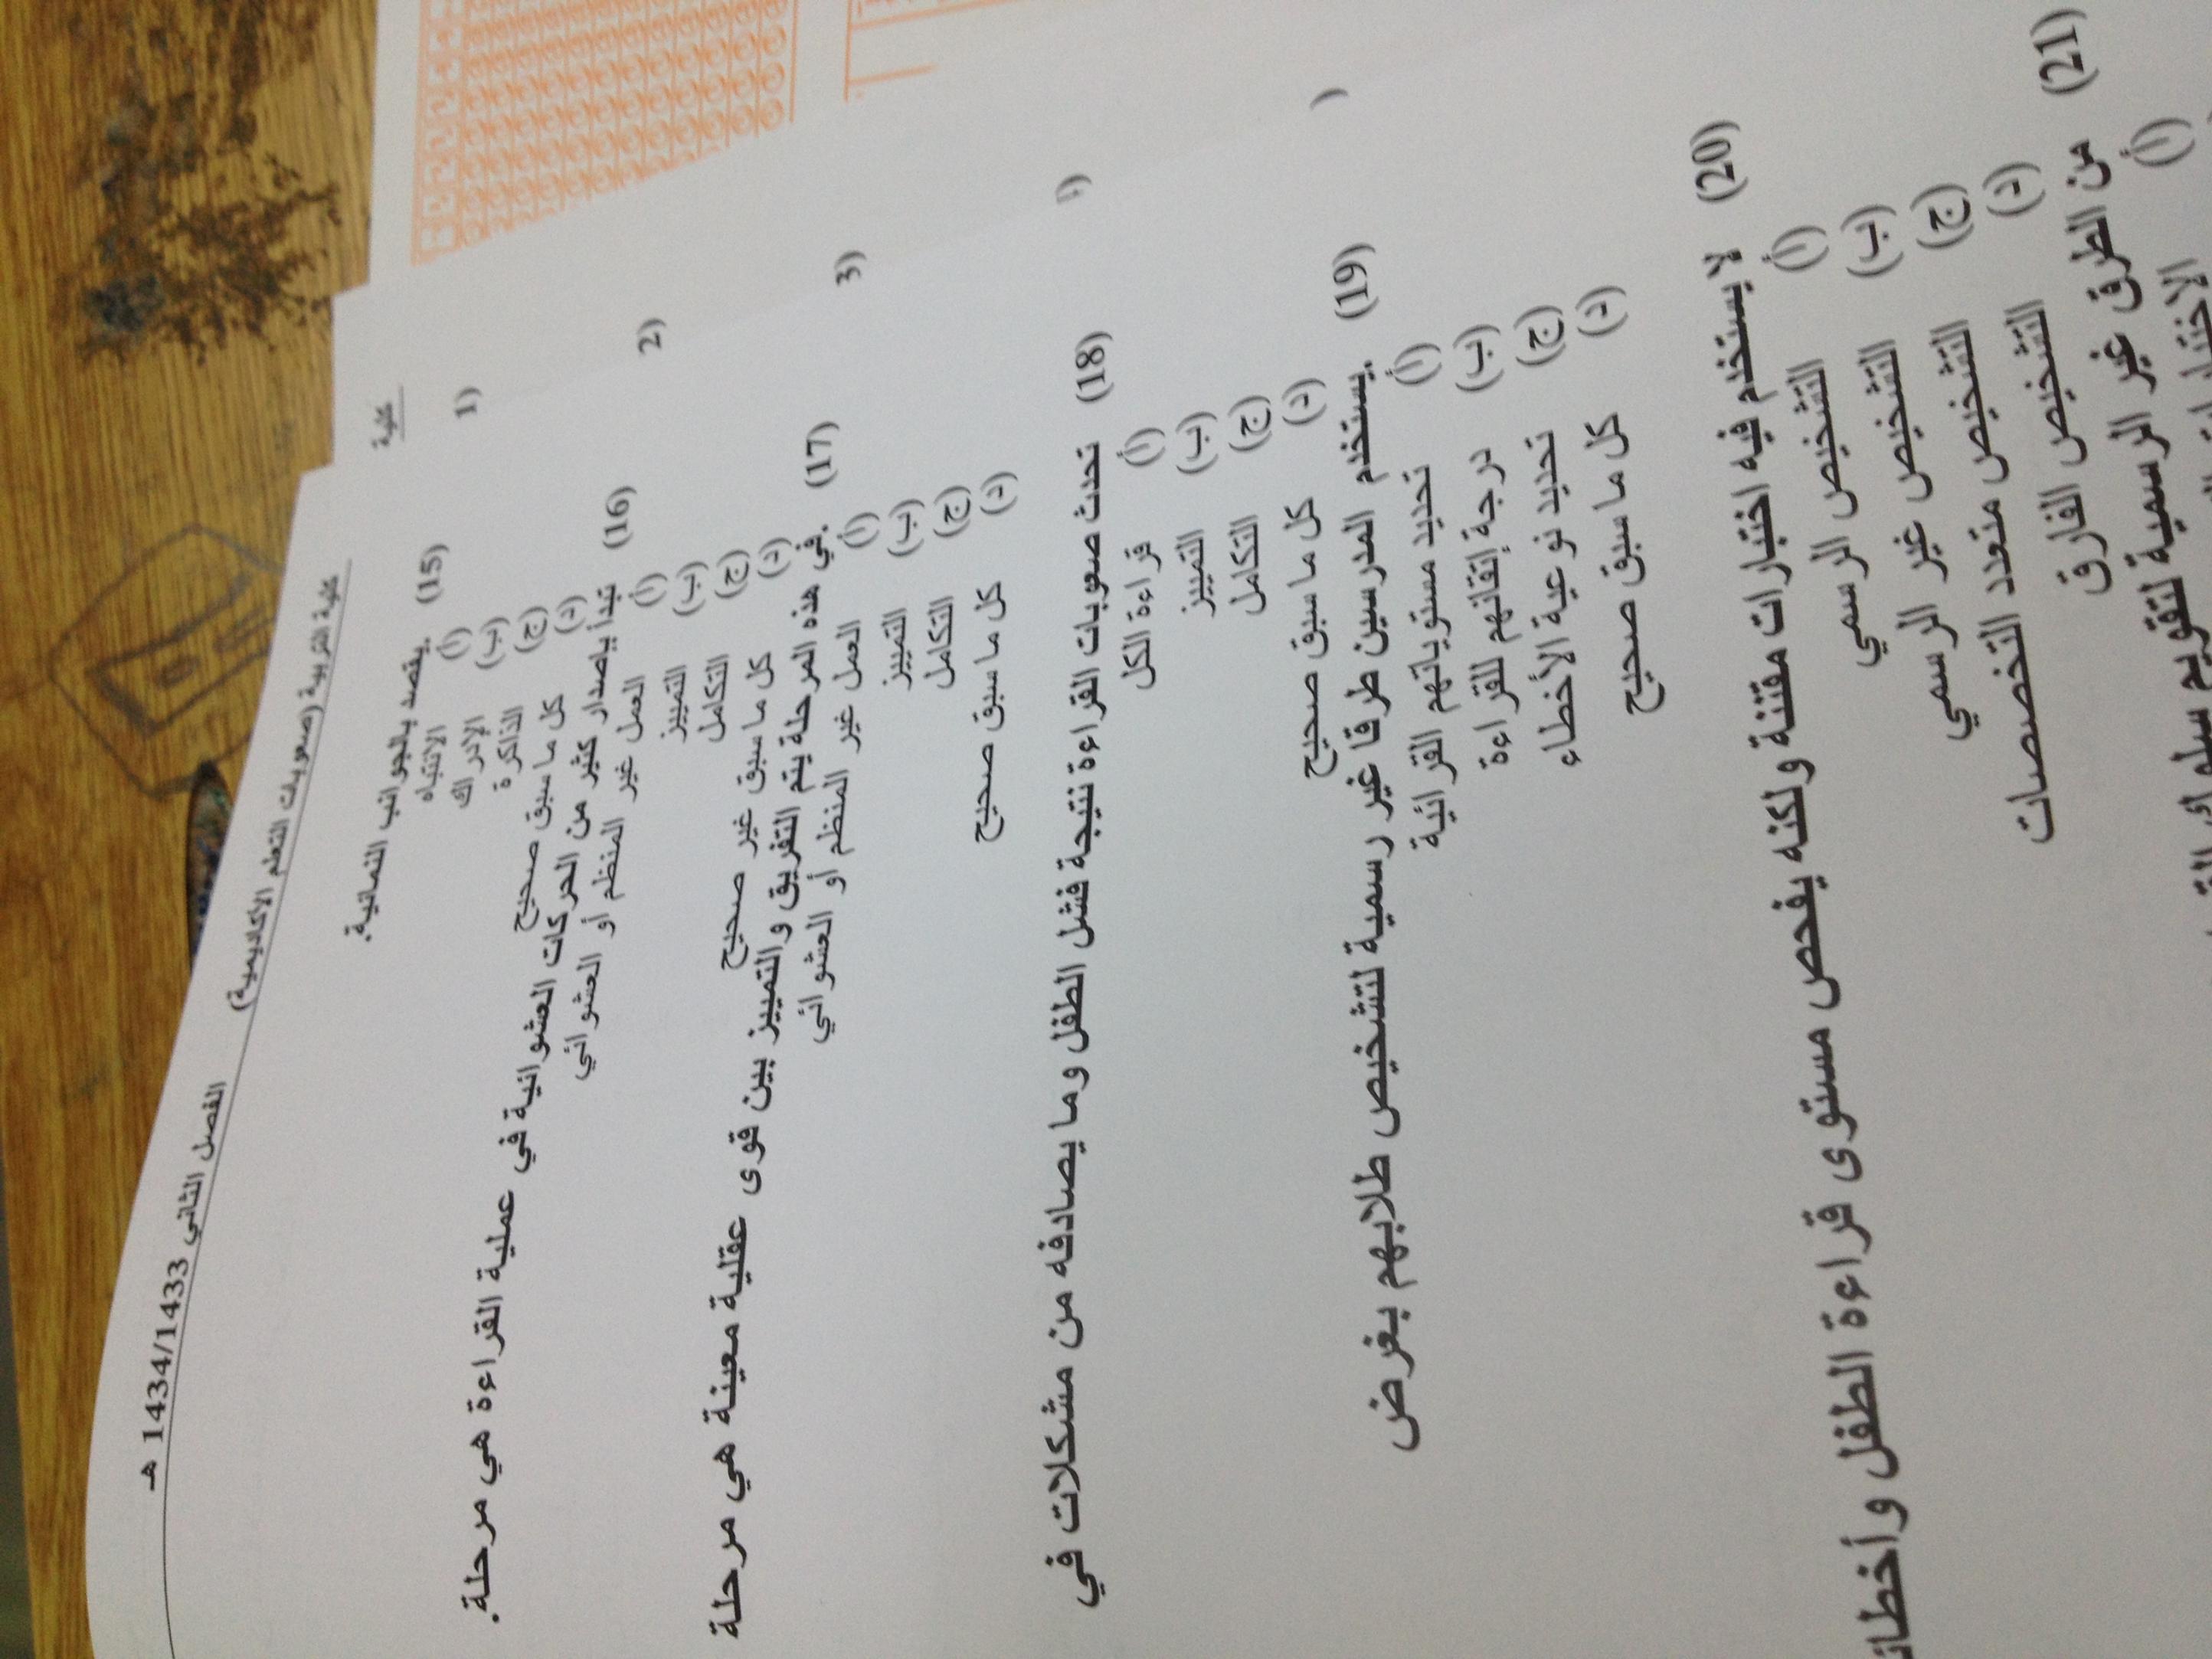 كلية التربية (صعوبات التعلم الأكاديمية)
الفصل الثاني 1434/1433 هـ
(15) يقصد بالجوانب النمائية.
(أ) الانتباه
(ب) الإدراك
(ج) الذاكرة
(د) كل ما سبق صحيح
(16) تبدأ بإصدار كثير من الحركات العشوائية في عملية القراءة هي مرحلة.
(أ) العمل غير المنظم أو العشوائي
(ب) التمييز
(ج) التكامل
(د) كل ما سبق غير صحيح
(17) في هذه المرحلة يتم التفريق والتمييز بين قوى عقلية معينة هي مرحلة
(أ) العمل غير المنظم أو العشوائي
(ب) التمييز
(ج) التكامل
(د) كل ما سبق صحيح
(18) تحدث صعوبات القراءة نتيجة فشل الطفل وما يصادفه من مشكلات في
(أ) قراءة الكل
(ب) التمييز
(ج) التكامل
(د) كل ما سبق صحيح
(19) يستخدم المدرسين طرقا غير رسمية لتشخيص طلابهم بغرض
(أ) تحديد مستوياتهم القرائية
(ب) درجة إتقانهم للقراءة
(ج) تحديد نوعية الأخطاء
(د) كل ما سبق صحيح
(20) لا يستخدم فيه اختبارات مقننة ولكنه يفحص مستوى قراءة الطفل
(أ) التشخيص الرسمي
(ب) التشخيص غير الرسمي
(ج) التشخيص متعدد التخصصات
(د) التشخيص الفارق
(21) من الطرق غير الرسمية لتقويم سلوك
(أ)
كلية
(1
(2
(3